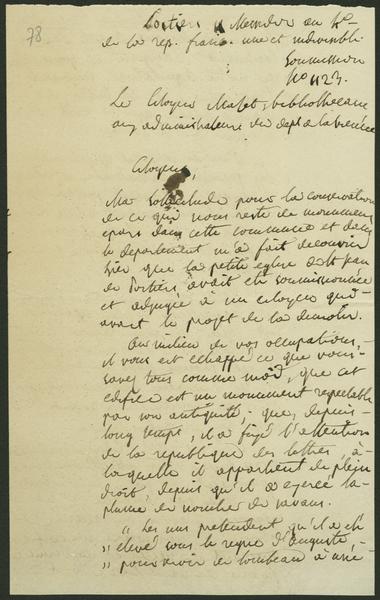 78
Poitiers 11 Messidor an 4e
de la rep. franc. une et indivisible.
Soumission
No 1123.
Le Citoyen Mazet, bibliothecaire
aux administrateurs du dept de la vienne
Citoyens,
Ma sollicitude pour la conservation
de ce qui nous reste de monumens
epars dans cette commune et dans
le departement m'a fait decouvrir
hier que la petite eglise de St Jean
de Poitiers avait eté soumissionnée
et adjugée à un citoyen qui
avait le projet de la demolir.
Au milieu de vos occupations,
il vous est echappé ce que vous
savez tous comme moi, que cet
edifice est un monument respectable
par son antiquité; que, depuis
long temps, il a fixé l'attention
de la republique des lettres, à
laquelle il appartient de plein
droit, depuis qu'il a exercé la
plume de nombre de savans.
" Les uns pretendent qu'il a eté
" elevé sous le regne d'auguste,
" pour servir de tombeau à une